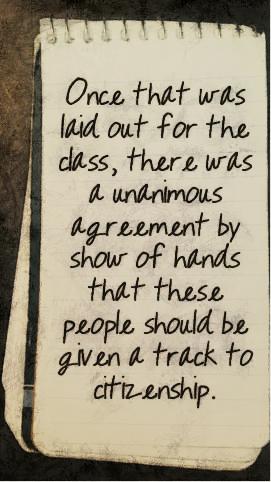 Once that was
laid out for the
class, there was
a unanimous
agreement by
show of hands
that these
people should be
given a track to
citizenship.